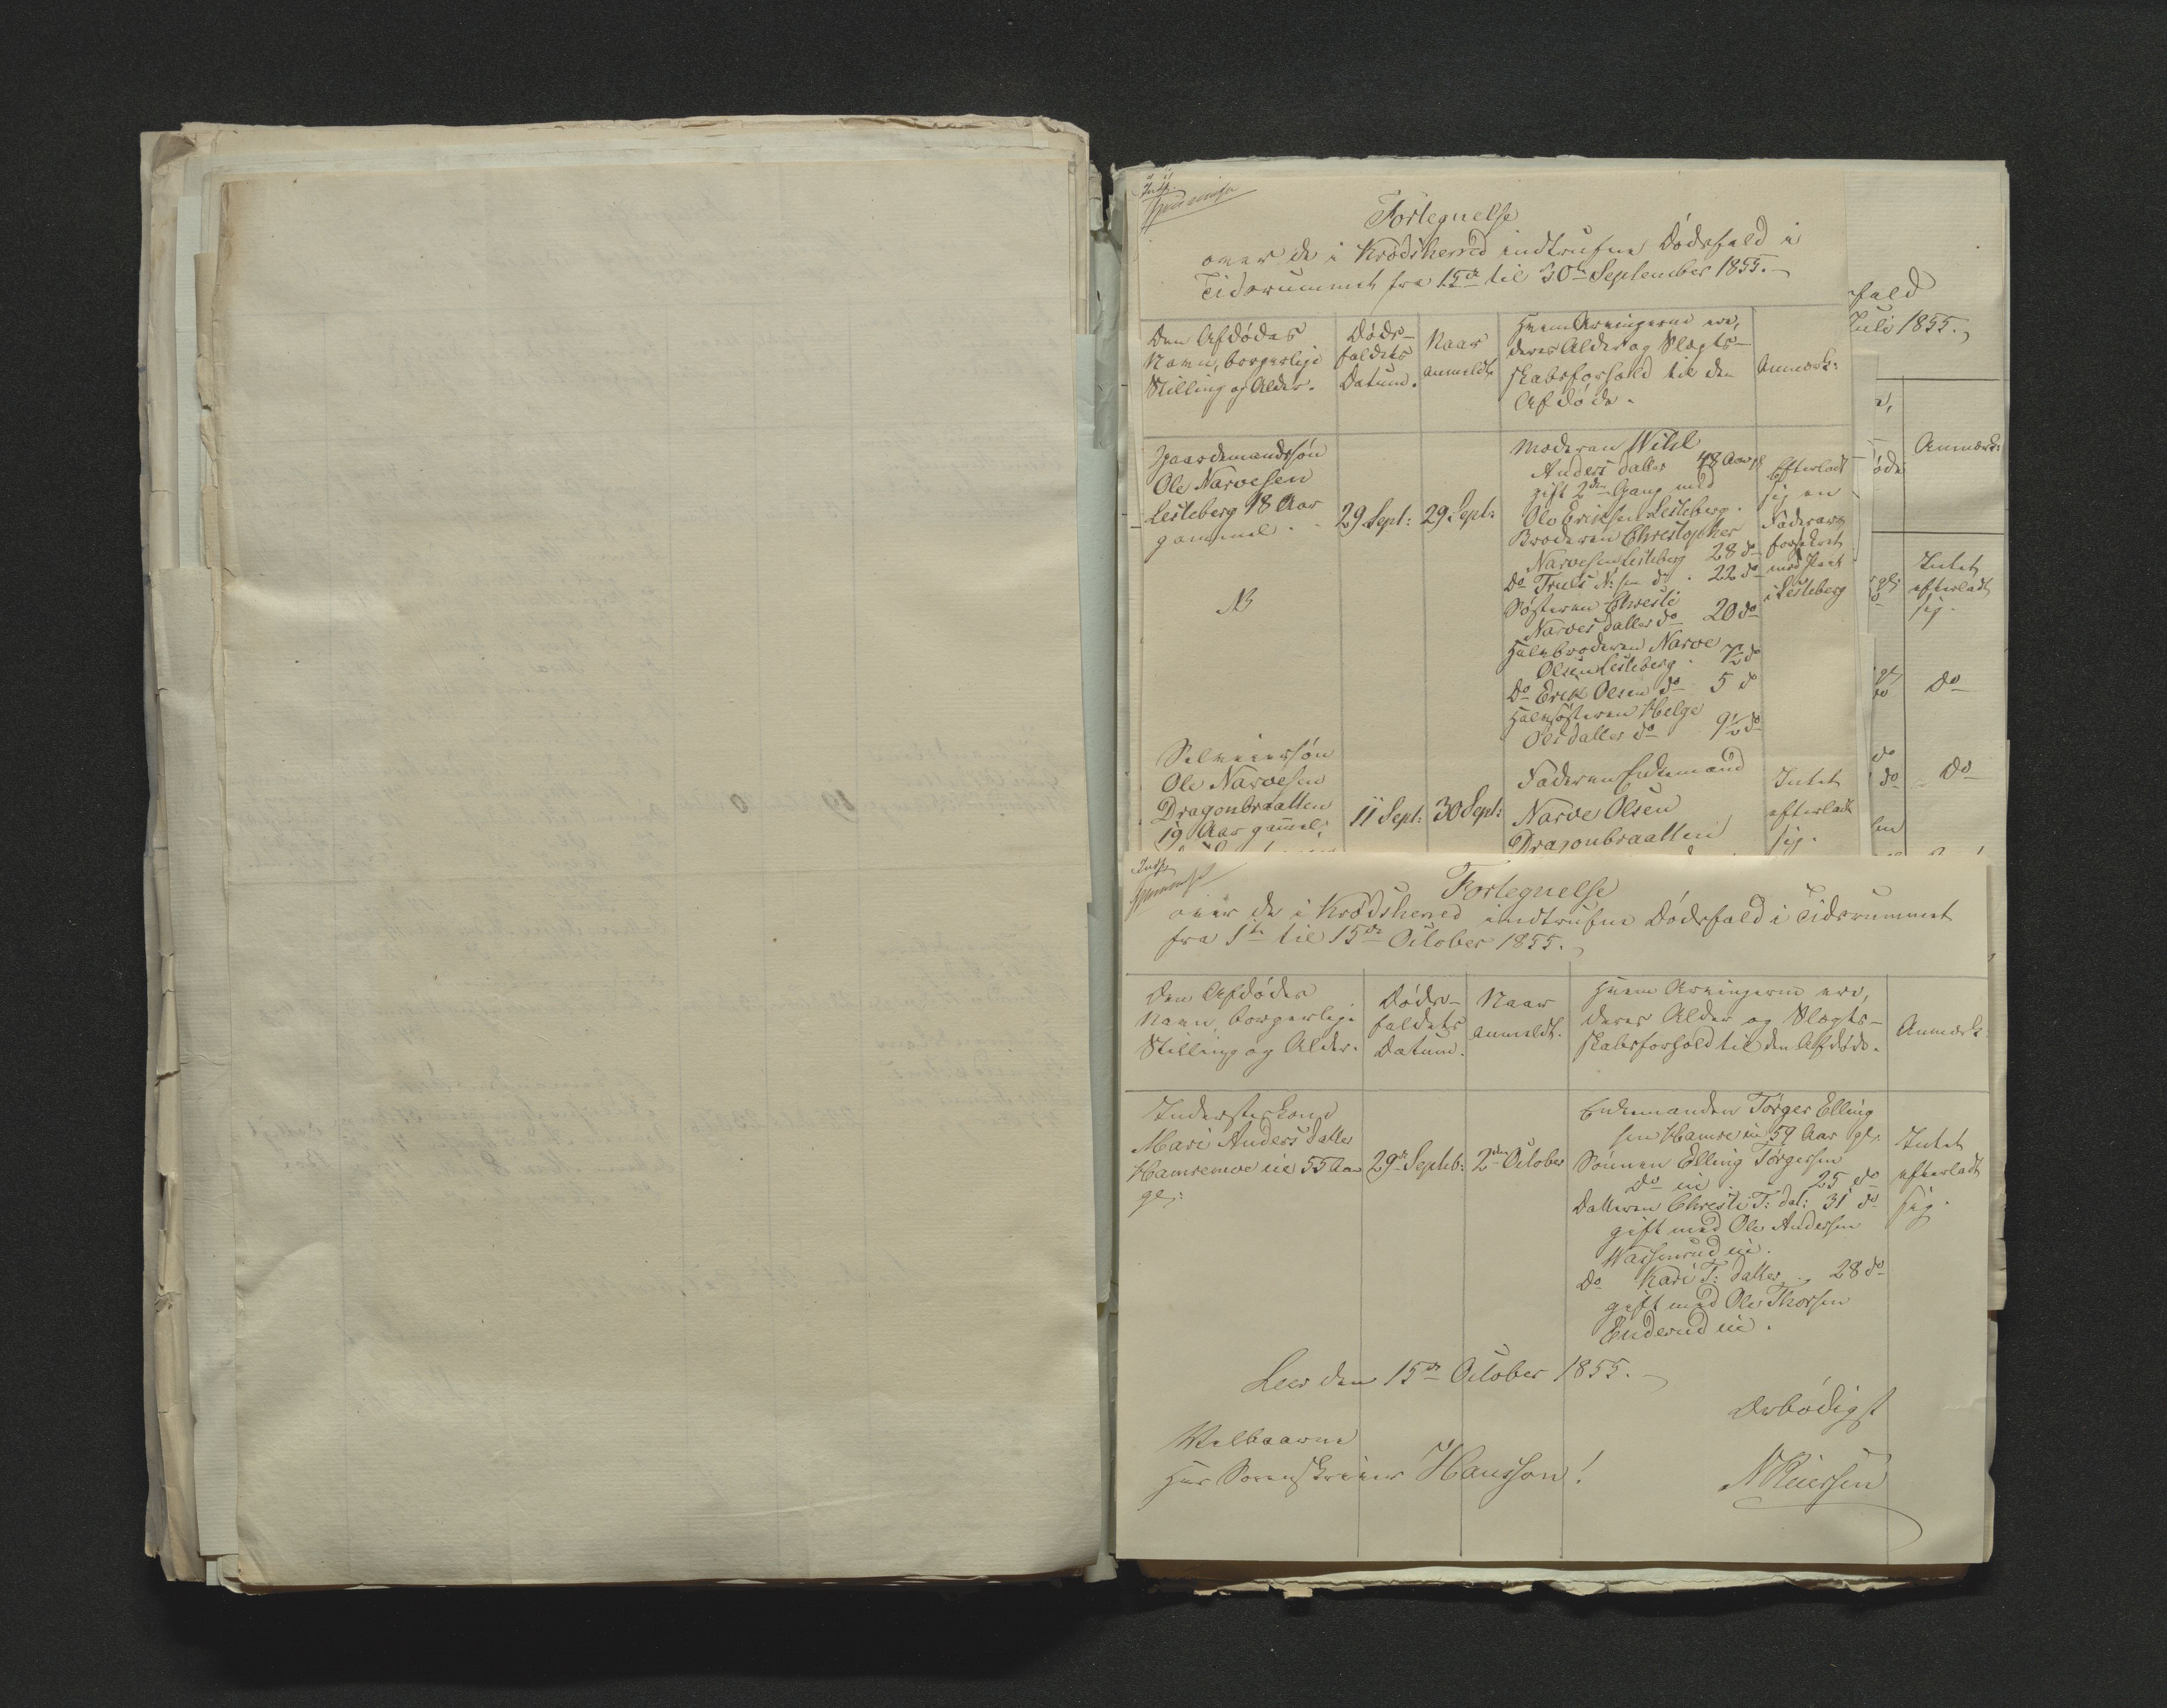 Indf.
Fortegnelse
over de i Krødsherred indtrufne Dødsfald i
Tidsrummet fra 15de til 30te September 1855.
Den Afdødes
Navn, borgerlige
Stilling og Alder.
Døds-
faldets
Datum.
Naar
anmeldt
Hvem Arvingerne ere,
deres Alder og Slægts-
skabsforhold til den
Afdøde.
Anmærk:
Gaardemandssøn
Ole Narvesen
Lesteberg 18 Aar
gammel.
NB
29 Sept:
29 Sept:
Moderen
Anders Datter 48 Aar
gift 2den Gang med
Ole Eriksen Lesteberg.
Broderen Christopher
Narvesen Lesteberg 28 do
Do Truls N:sen do 22 do
Søsteren Christi
Narves Datter do 20 do
Halvbroderen Narve
Olsen Lesteberg 7½ do
Do Erik Olsen do 5 do
Halvsøsteren Helge
Ols Datter do 9½ do
Efterladt
sig en
Faderarv
forsikret
med Pant
i Lesteberg
Selveiersøn
Ole Narvesen
Dragonbraatten
19 Aar gammel,
11 Sept:
30 Sept:
Faderen Enkemand
Narve Olsen
Dragonbraatten
Intet
efterladt
sig.
fald
Juli 1855.
Anmærk:
Intet
efterladt
sig.
do
do
Do
do
do
Do
Indf.
Fortegnelse
over de i Krødsherred indtrufne Dødsfald i Tidsrummet
fra 1ste til 15de October 1855.
Den Afdødes
Navn, borgerlige
Stilling og Alder.
Døds-
faldets
Datum.
Naar
anmeldt.
Hvem Arvingerne ere,
deres Alder og Slægts-
skabsforhold til den Afdøde.
Anmærk.
Inderstekone
Mari Anders Datter
Hamremoe eie 55 Aar
gl:
29de Septb:
2den October
Enkemanden Torger Elling
sen Hamre eie 59 Aar gl.
Sønnen Elling Torgersen
Do eie 25 do
Datteren Christi T: Dat: 31 do
gift med Ole Andersen
eie.
Do Kari T: Datter 28 do
gift med Ole Thorsen
Enderud eie.
Intet
efterladt
sig.
Leer den 15de October 1855.
Ærbødigst
Velbaarne
Herr Sorenskriver Hansson!
N Reiersen